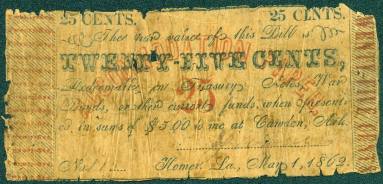 25 CENTS. 25 CENTS.
The word value of this Bill is
TWENTY-FIVE CENTS,
Redeemable in Treasury Notes, War
Bonds, or other current funds, when present-
ed, in sums of $5.00 to me at Camden, Ark.
25
No.
Homer, La., May 1, 1862.